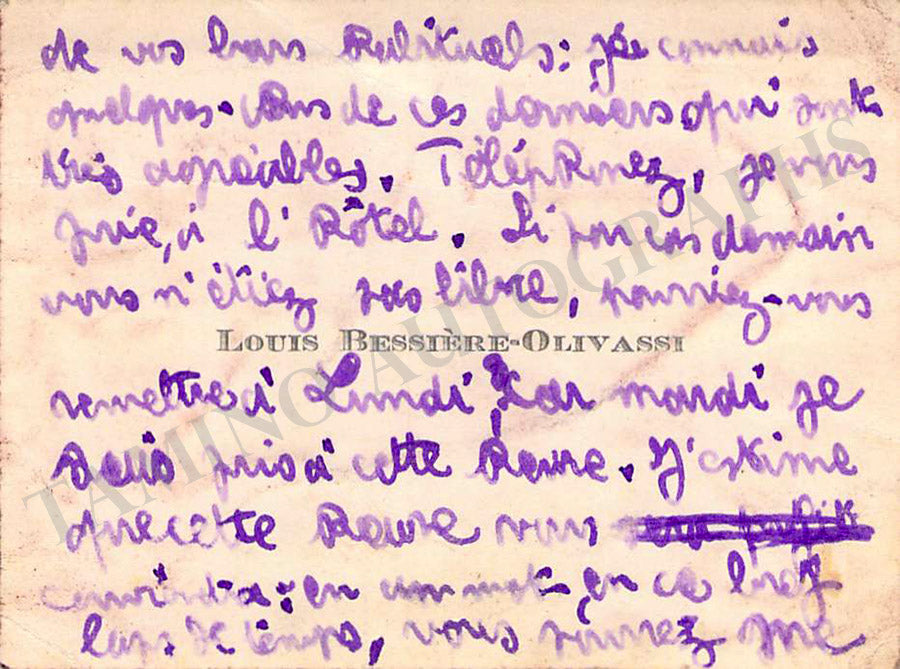 de vos bars habituels : je connais
quelques-uns de ces derniers qui sont
très agréables. Téléphonez, je vous
prie, à l'hôtel. Si par cas demain
vous n'étiez pas libre, pourriez-vous
LOUIS BESSIÈRE-OLIVASSI
remettre à Lundi ? Car mardi je
suis pris à cette heure. J'estime
que cette heure vous
conviendra : en un mot en ce bref
laps de temps, vous pourrez me
TAMINO AUTOGRAPHS